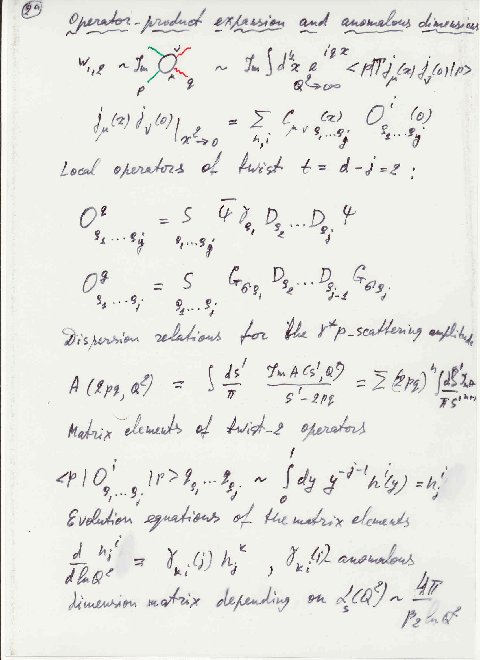 Operator-product expansion and anomalous dimensions
W₁,₂ ~ Im ν μ p q ~ Im ∫ d⁴x e^{iqx} <p|T j_μ(x) j_ν(0)|p> Q²→∞
j_μ(x) j_ν(0)|_{x²→0} = Σ_{n,i} C_{μν ρ₁...ρ_j}(x) O^i_{ρ₁...ρ_j}(0)
Local operators of twist t = d-j = 2 :
O^q_{ρ₁...ρ_j} = S_{ρ₁...ρ_j} Ψ̄ γ_{ρ₁} D_{ρ₂}...D_{ρ_j} Ψ
O^g_{ρ₁...ρ_j} = S_{ρ₁...ρ_j} G_{σρ₁} D_{ρ₂}...D_{ρ_{j-1}} G_{σρ_j}
Dispersion relations for the γ*p-scattering amplitude
A(2pq, Q²) = ∫ ds'/π Im A(s', Q²)/(s'-2pq) = Σ(2pq)ⁿ ∫
Matrix elements of twist-2 operators
<p| O^i_{ρ₁...ρ_j} |p> q_{ρ₁}...q_{ρ_j} ~ ∫₀¹ dy y^{-j-1} n^i(y) = n_j^i
Evolution equations of the matrix elements
d/(d ln Q²) n_j^i = γ_{ki}(j) n_j^k , γ_{ki}(j) anomalous
dimension matrix depending on α_s(Q²) ~ 4π/(β₂ ln Q²)